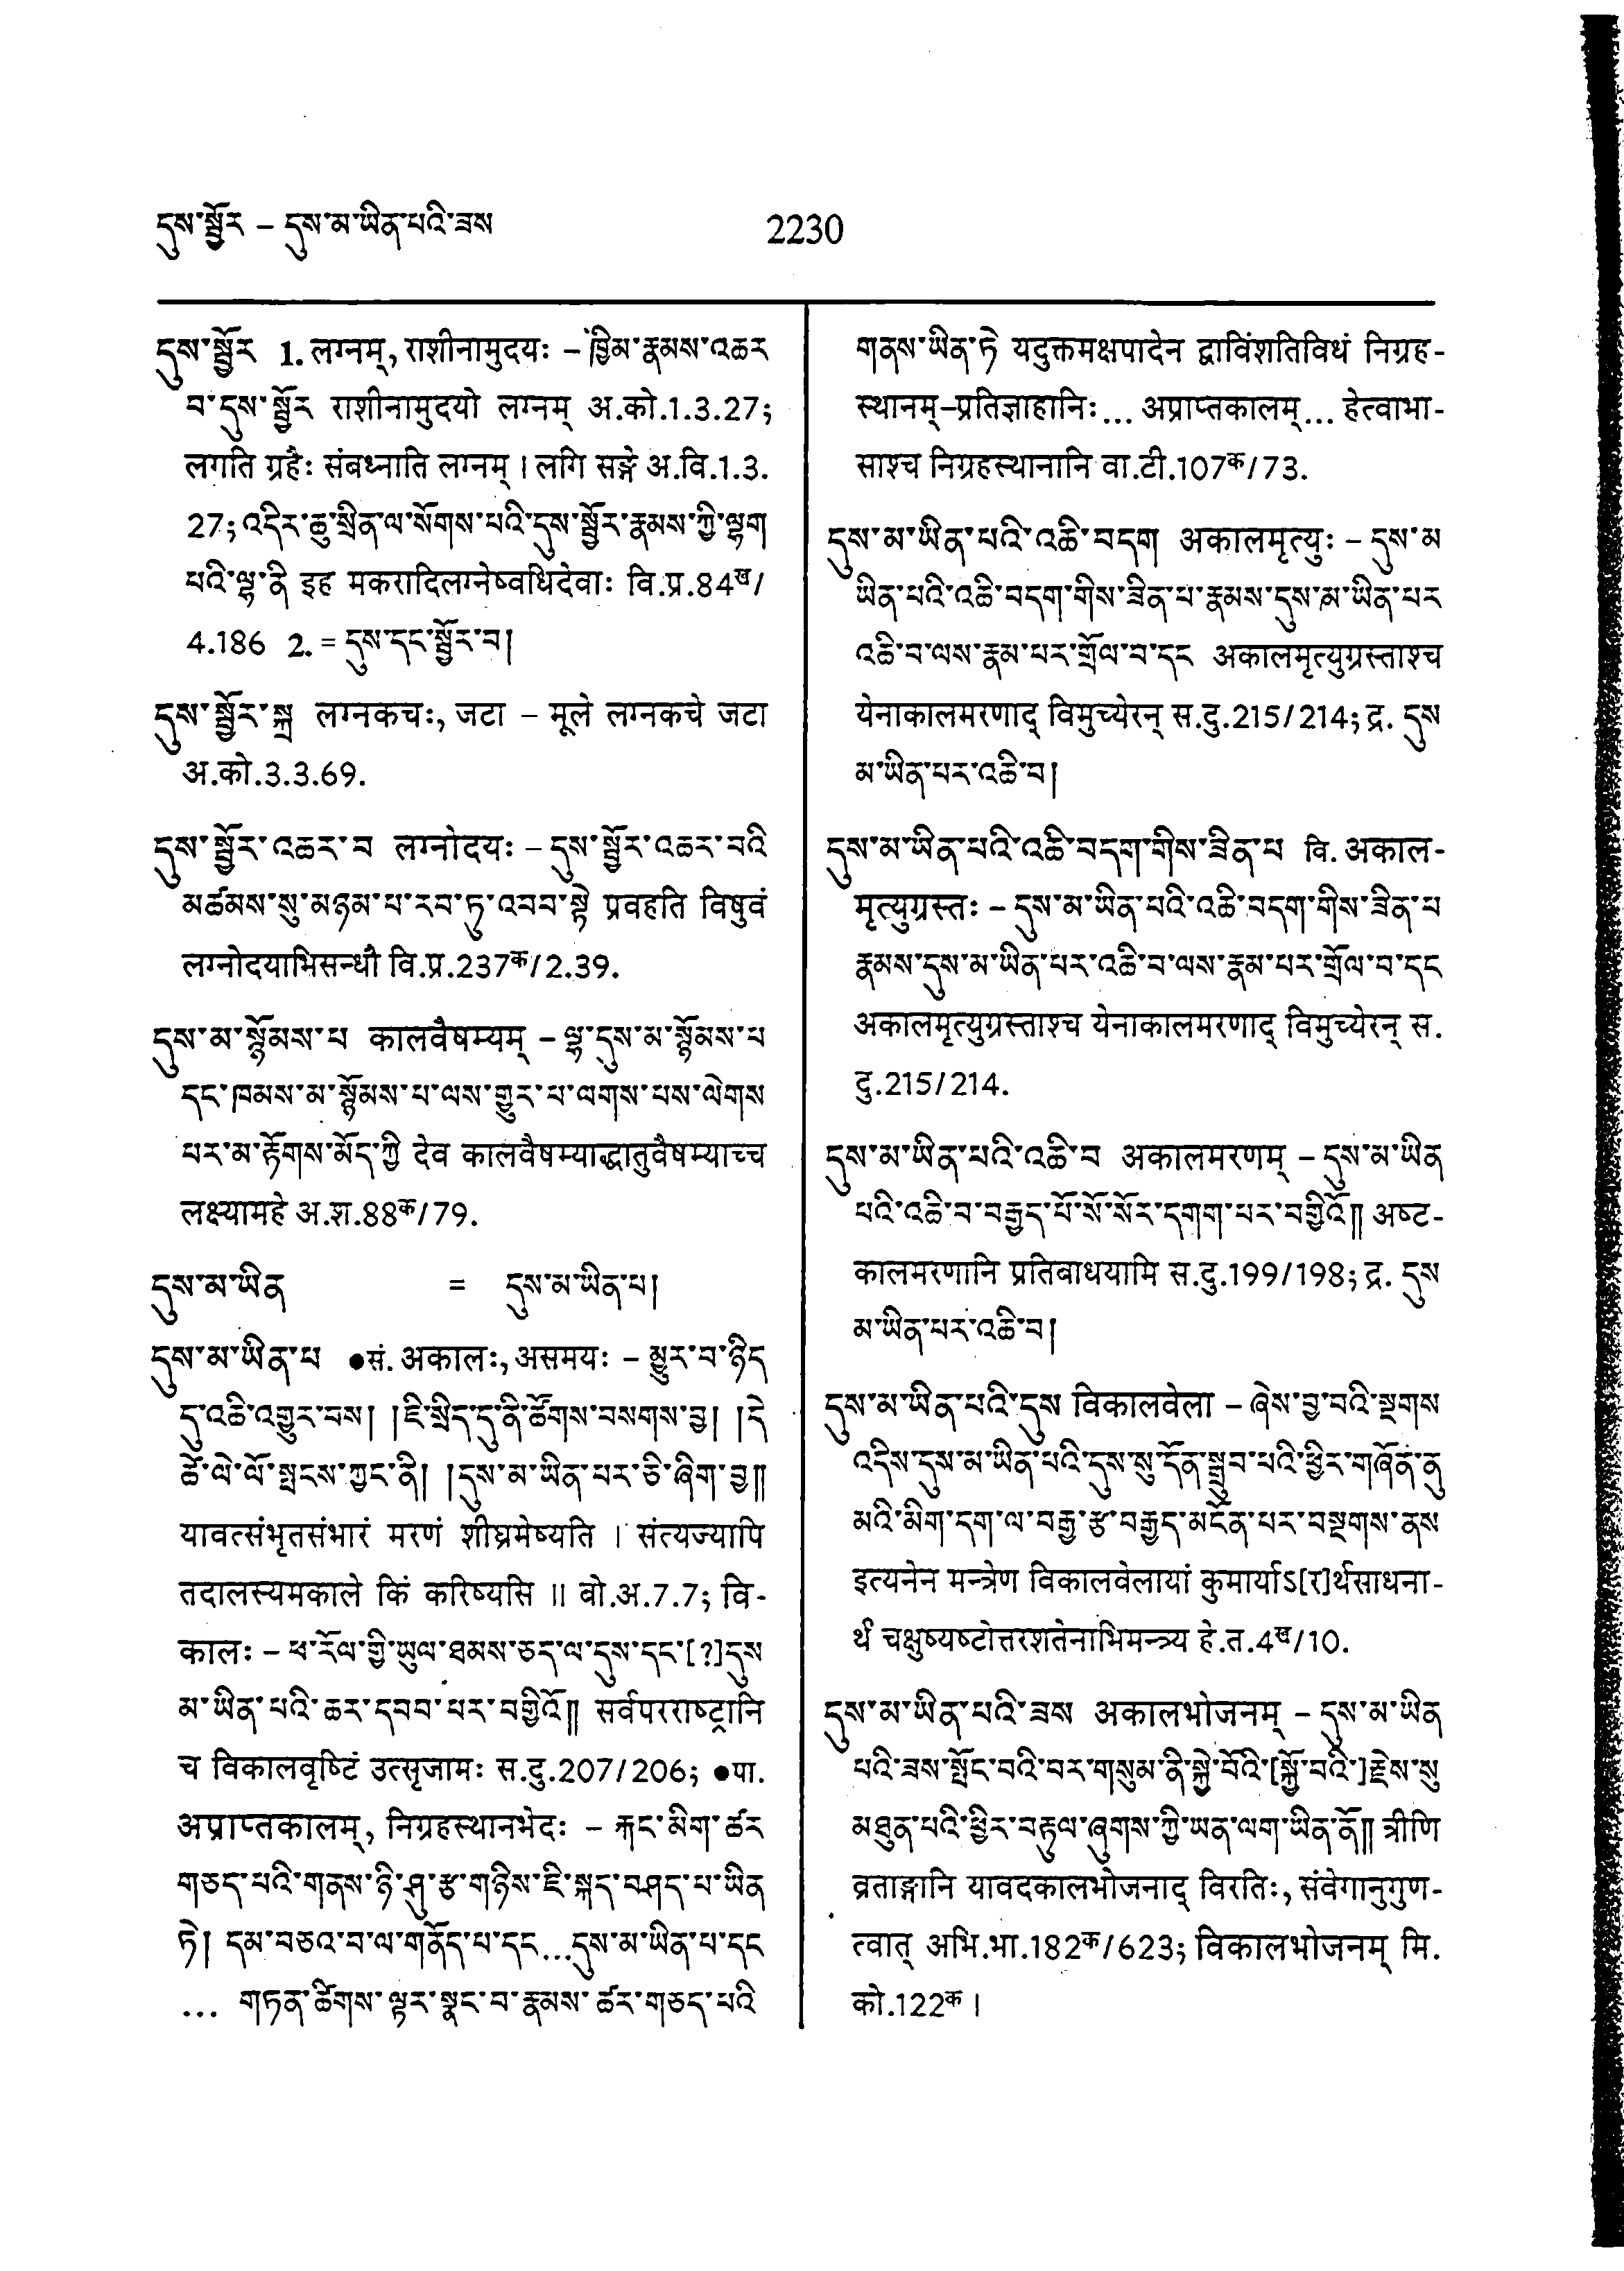 དུས་སྦྱོར – དུས་མ་ཡིན་པའི་ཟས
2230
དུས་སྦྱོར 1. लग्नम्, राशीनामुदयः – ཁྱིམ་རྣམས་འཆར
བ་དུས་སྦྱོར राशीनामुदयो लग्नम् अ.को.1.3.27;
लगति ग्रहैः संबध्नाति लग्नम् । लगि सङ्गे अ.वि.1.3.
27; འདིར་ཆུ་སྲིན་ལ་སོགས་པའི་དུས་སྦྱོར་རྣམས་ཀྱི་ལྷག
པའི་ལྷ་ནི इह मकरादिलग्नेष्वधिदेवाः वि.प्र.84ख/
4.186 2. = དུས་དང་སྦྱོར་བ།
དུས་སྦྱོར་སྐྲ लग्नकचः, जटा – मूले लग्नकचे जटा
अ.को.3.3.69.
དུས་སྦྱོར་འཆར་བ लग्नोदयः – དུས་སྦྱོར་འཆར་བའི
མཚམས་སུ་མཉམ་པ་རབ་ཏུ་འབབ་སྟེ प्रवहति विषुवं
लग्नोदयाभिसन्धौ वि.प्र.237क/2.39.
དུས་མ་སྙོམས་པ कालवैषम्यम् – ལྷ་དུས་མ་སྙོམས་པ
དང་ཁམས་མ་སྙོམས་པ་ལས་གྱུར་པ་ལགས་པས་ལེགས
པར་མ་རྟོགས་མོད་ཀྱི देव कालवैषम्याद्धातुवैषम्याच्च
लक्ष्यामहे अ.श.88क/79.
དུས་མ་ཡིན = དུས་མ་ཡིན་པ།
དུས་མ་ཡིན་པ ●सं. अकालः, असमयः – མྱུར་བ་ཉིད
དུ་འཆི་འགྱུར་བས། །ཇི་སྲིད་དུ་ནི་ཚོགས་བསགས་བྱ། །དེ
ཚེ་ལེ་ལོ་སྤངས་ཀྱང་ནི། །དུས་མ་ཡིན་པར་ཅི་ཞིག་བྱ༎
यावत्संभृतसंभारं मरणं शीघ्रमेष्यति । संत्यज्यापि
तदालस्यमकाले किं करिष्यसि ॥ बो.अ.7.7; वि-
कालः – ཕ་རོལ་གྱི་ཡུལ་ཐམས་ཅད་ལ་དུས་དང་[?]དུས
མ་ཡིན་པའི་ཆར་དབབ་པར་བགྱིའོ༎ सर्वपरराष्ट्रानि
च विकालवृष्टिं उत्सृजामः स.दु.207/206; ●पा.
अप्राप्तकालम्, निग्रहस्थानभेदः – རྐང་མིག་ཚར
གཅད་པའི་གནས་ཉི་ཤུ་རྩ་གཉིས་ཇི་སྐད་བཤད་པ་ཡིན
ཏེ། དམ་བཅའ་བ་ལ་གནོད་པ་དང...དུས་མ་ཡིན་པ་དང
... གཏན་ཚིགས་ལྟར་སྣང་བ་རྣམས་ཚར་གཅད་པའི
གནས་ཡིན་ཏེ यदुक्तमक्षपादेन द्वाविंशतिविधं निग्रह-
स्थानम्–प्रतिज्ञाहानिः... अप्राप्तकालम्... हेत्वाभा-
साश्च निग्रहस्थानानि वा.टी.107क/73.
དུས་མ་ཡིན་པའི་འཆི་བདག अकालमृत्युः – དུས་མ
ཡིན་པའི་འཆི་བདག་གིས་ཟིན་པ་རྣམས་དུས་མ་ཡིན་པར
འཆི་བ་ལས་རྣམ་པར་གྲོལ་བ་དང अकालमृत्युग्रस्ताश्च
येनाकालमरणाद् विमुच्येरन् स.दु.215/214; द्र. དུས
མ་ཡིན་པར་འཆི་བ།
དུས་མ་ཡིན་པའི་འཆི་བདག་གིས་ཟིན་པ वि. अकाल-
मृत्युग्रस्तः – དུས་མ་ཡིན་པའི་འཆི་བདག་གིས་ཟིན་པ
རྣམས་དུས་མ་ཡིན་པར་འཆི་བ་ལས་རྣམ་པར་གྲོལ་བ་དང
अकालमृत्युग्रस्ताश्च येनाकालमरणाद् विमुच्येरन् स.
दु.215/214.
དུས་མ་ཡིན་པའི་འཆི་བ अकालमरणम् – དུས་མ་ཡིན
པའི་འཆི་བ་བརྒྱད་པོ་སོ་སོར་དགག་པར་བགྱིའོ༎ अष्ट-
कालमरणानि प्रतिबाधयामि स.दु.199/198; द्र. དུས
མ་ཡིན་པར་འཆི་བ།
དུས་མ་ཡིན་པའི་དུས विकालवेला – ཞེས་བྱ་བའི་སྔགས
འདིས་དུས་མ་ཡིན་པའི་དུས་སུ་དོན་སྒྲུབ་པའི་ཕྱིར་གཞོན་ནུ
མའི་མིག་དག་ལ་བརྒྱ་རྩ་བརྒྱད་མངོན་པར་བསྔགས་ནས
इत्यनेन मन्त्रेण विकालवेलायां कुमार्याऽ[र]र्थसाधना-
र्थं चक्षुष्यष्टोत्तरशतेनाभिमन्त्र्य हे.त.4ख/10.
དུས་མ་ཡིན་པའི་ཟས अकालभोजनम् – དུས་མ་ཡིན
པའི་ཟས་སྤོང་བའི་བར་གསུམ་ནི་སྐྱེ་བོའི་[སྐྱོ་བའི་]རྗེས་སུ
མཐུན་པའི་ཕྱིར་བརྟུལ་ཞུགས་ཀྱི་ཡན་ལག་ཡིན་ནོ༎ त्रीणि
व्रताङ्गानि यावदकालभोजनाद् विरतिः, संवेगानुगुण-
त्वात् अभि.भा.182क/623; विकालभोजनम् मि.
को.122क ।